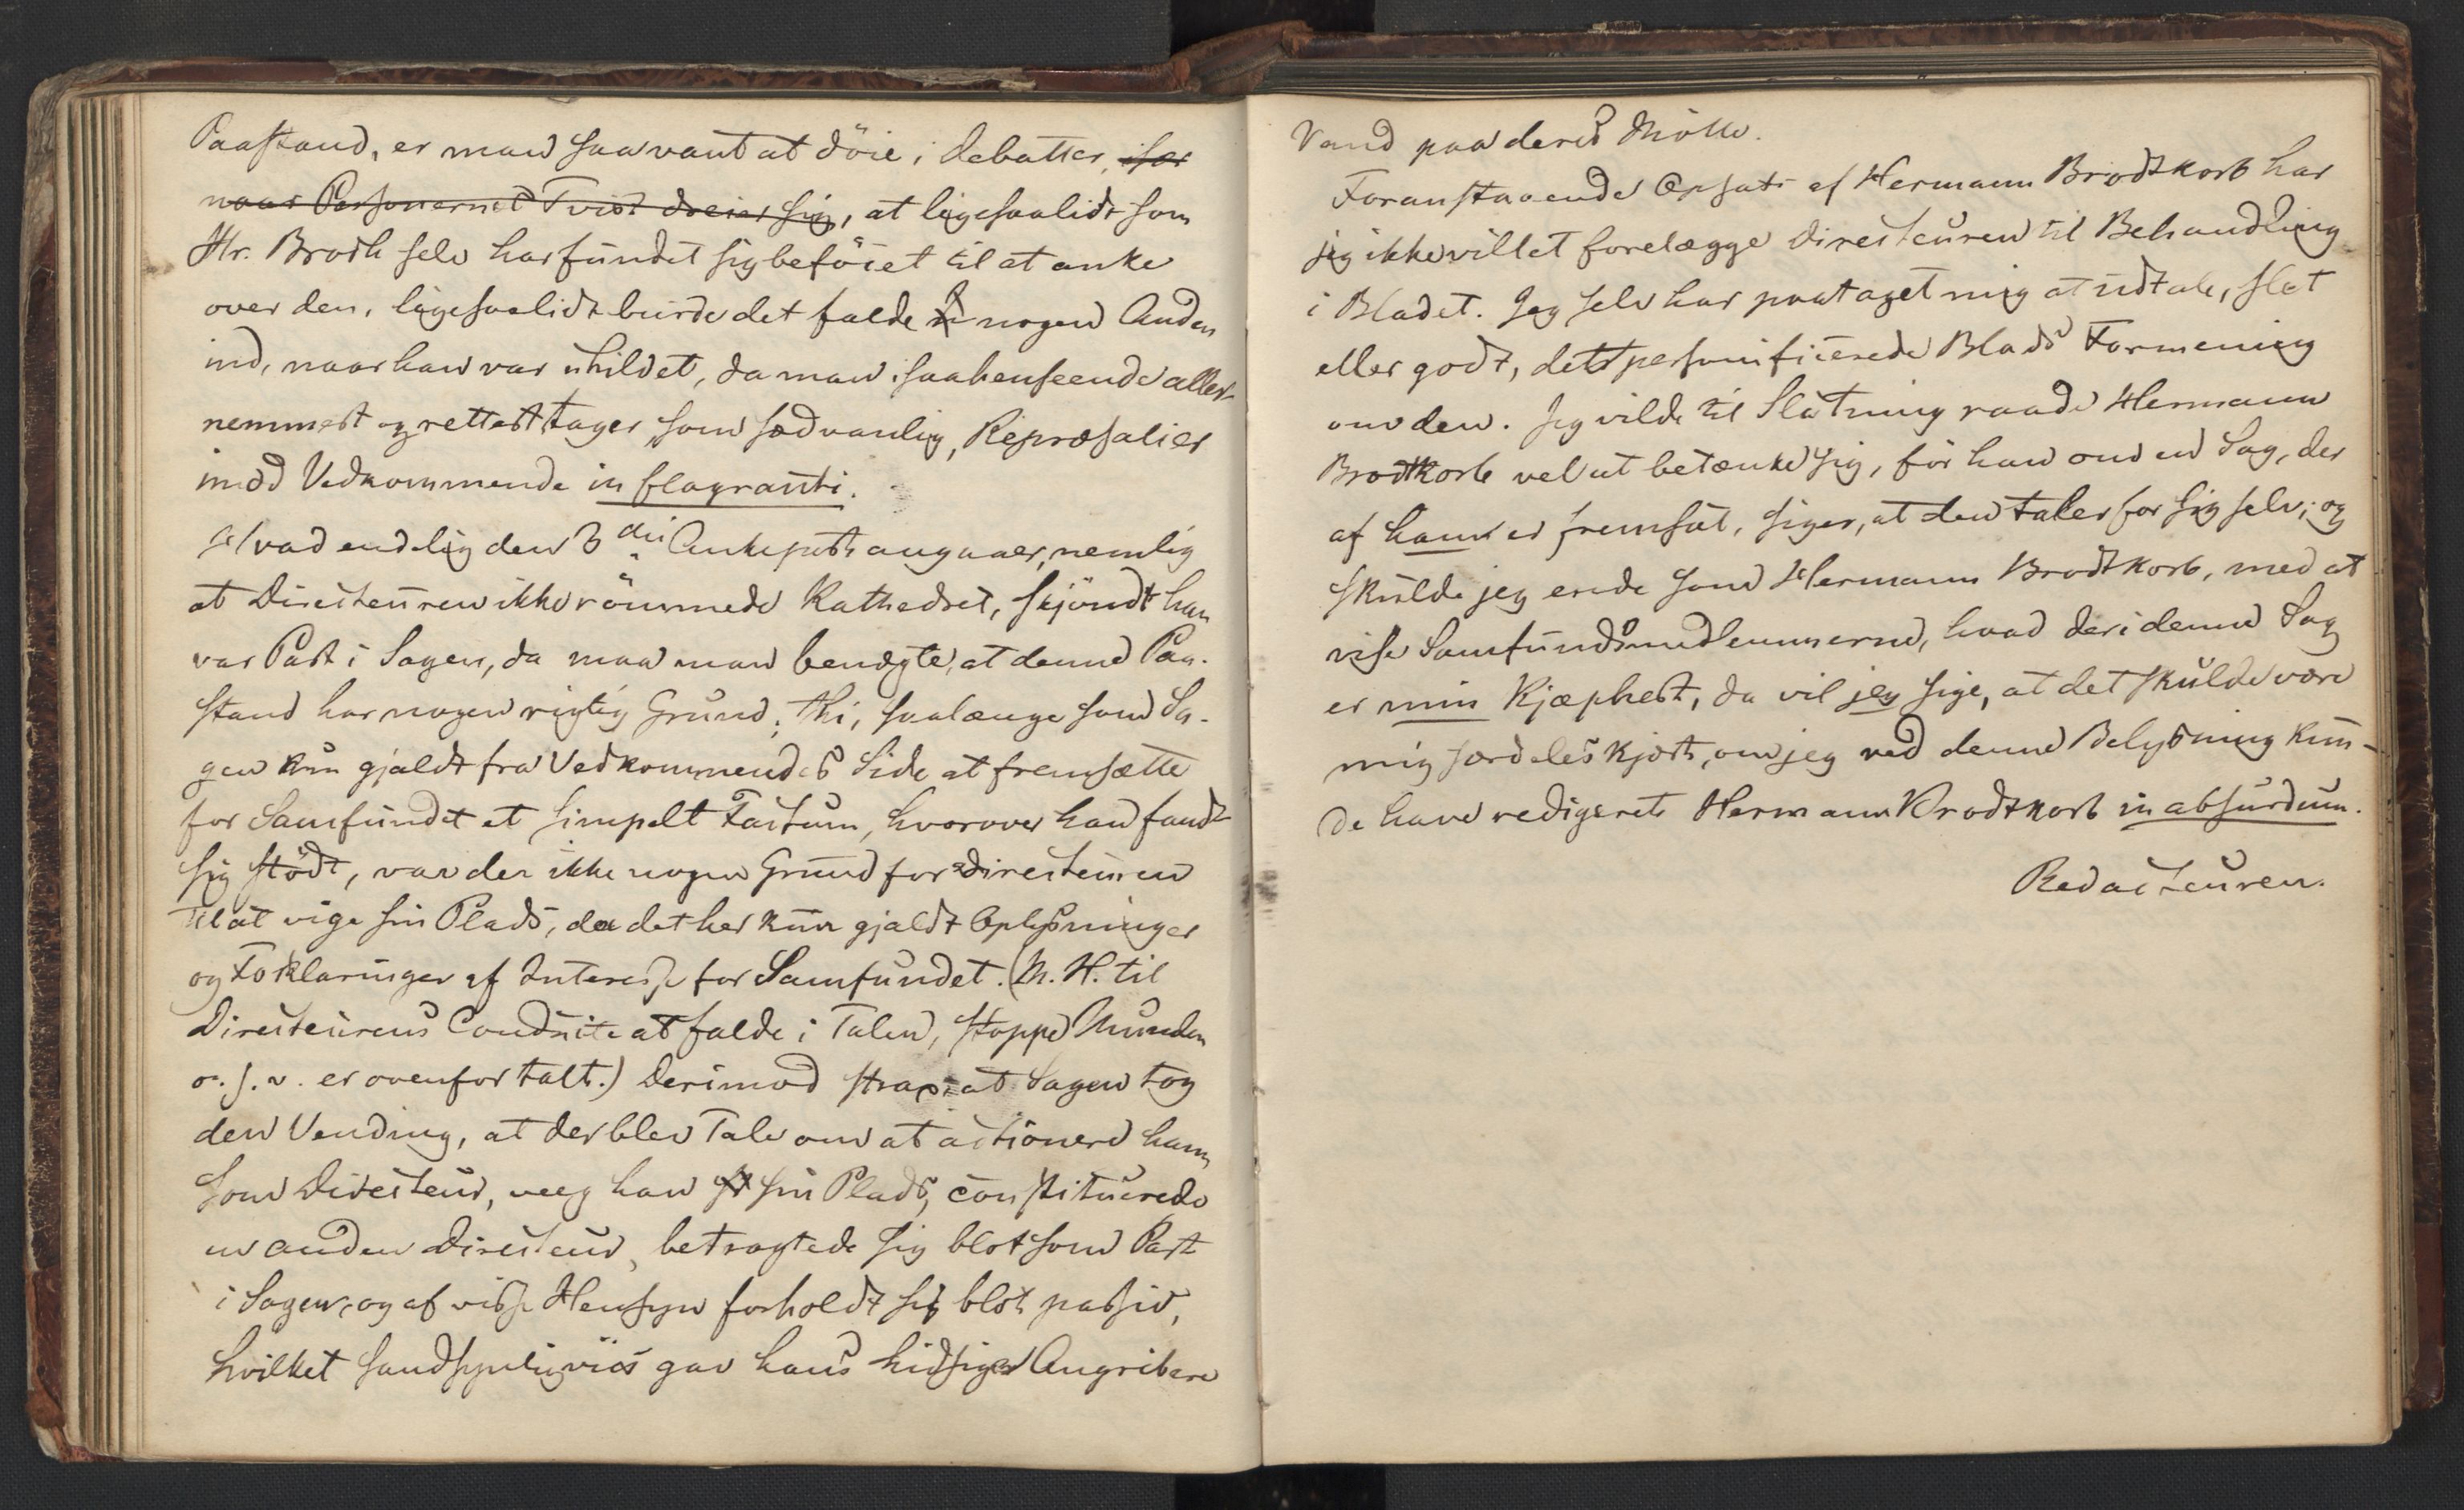 Paastand, er man saa vant at döie i Debatter, især
naar Personernes Tvist dreier sig, at ligesaalidt som
Hr. Brodk selv har fundet sig beföiet til at anke
over den, ligesaalidt burde det falde nogen Anden
ind, naar han var uhildet, da man i saa henseende aller-
nemmest og rettest tager, som sædvanlig, Repræsalier
imod Vedkommende in flagranti.
Hvad endelig den 3die Ankepost angaaer, nemlig
at Directeuren ikke römmede Kathedret, skjöndt han
var Part i Sagen, da maa man benægte, at denne Paa-
stand har nogen rigtig Grund; thi, saalænge som Sa-
gen kun gjaldt fra Vedkommendes Side at fremsætte
for Samfundet et simpelt Factum, hvorover han fandt
sig stödt, var der ikke nogen Grund for Directeuren
til at vige sin Plads, da det her kun gjaldt Oplysninger
og Forklaringer af Interesse for Samfundet. (M. H. til
Directeurens Conduite at falde i Talen, stoppe Munden
o. s. v. er ovenfor talt.) Derimod strax at Sagen tog
den Vending, at der blev Tale om at actionere ham
som Directeur, veeg han sin Plads, constituerede
en anden Directeur, betragtede sig blot som Part
i Sagen, og af visse Hensyn forholdt sig blot passiv,
hvilket sandsynligviis gav hans hidsige Angribere
Vand paa deres Mölle.
Foranstaaende Opsats af Hermann Brodtkorb har
jeg ikke villet forelægge Directeuren til Behandling
i Bladet. Jeg selv har paataget mig at udtale, slet
eller godt, det personificerede Blads Formening
om den. Jeg vilde til Slutning raade Hermann
Brodtkorb vel at betænke sig, för han om en Sag, der
af ham er fremsat, siger, at den taler for sig selv; og
skulde jeg ende som Hermann Brodtkorb, med at
vise Samfundsmedlemmerne, hvad der i denne Sag
er min Kjæphest, da vil jeg sige, at det skulde være
mig særdeles kjært, om jeg ved denne Belysning kun-
de have redigeret Hermann Brodtkorb in absurdum.
Redacteuren.